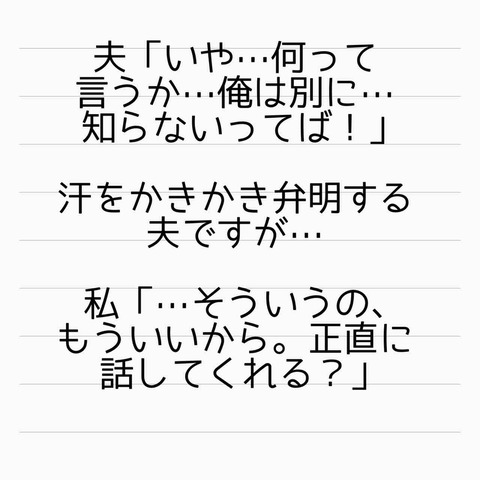 夫「いや…何って
言うか…俺は別に…
知らないってば！」
汗をかきかき弁明する
夫ですが…
私「…そういうの、
もういいから。正直に
話してくれる？」